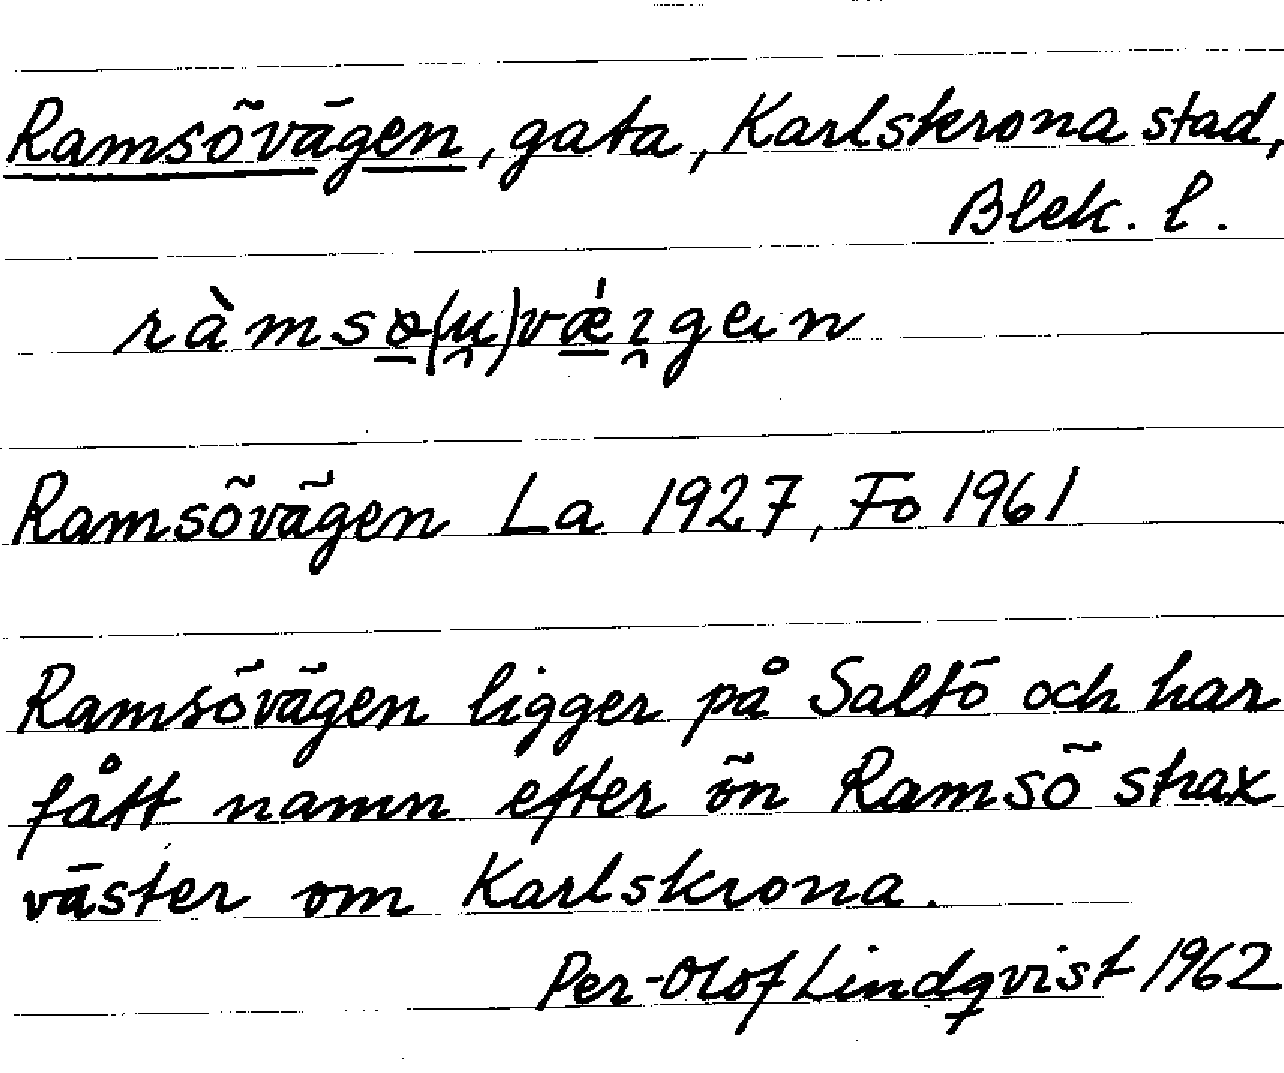 Ramsövägen, gata, Karlskrona stad,
Blek. l.
Ramsövägen La 1927, Fo 1961
Ramsövägen ligger på Saltö och har
fått namn efter ön Ramsö strax
väster om Karlskrona.
Per-Olof Lindqvist 1962